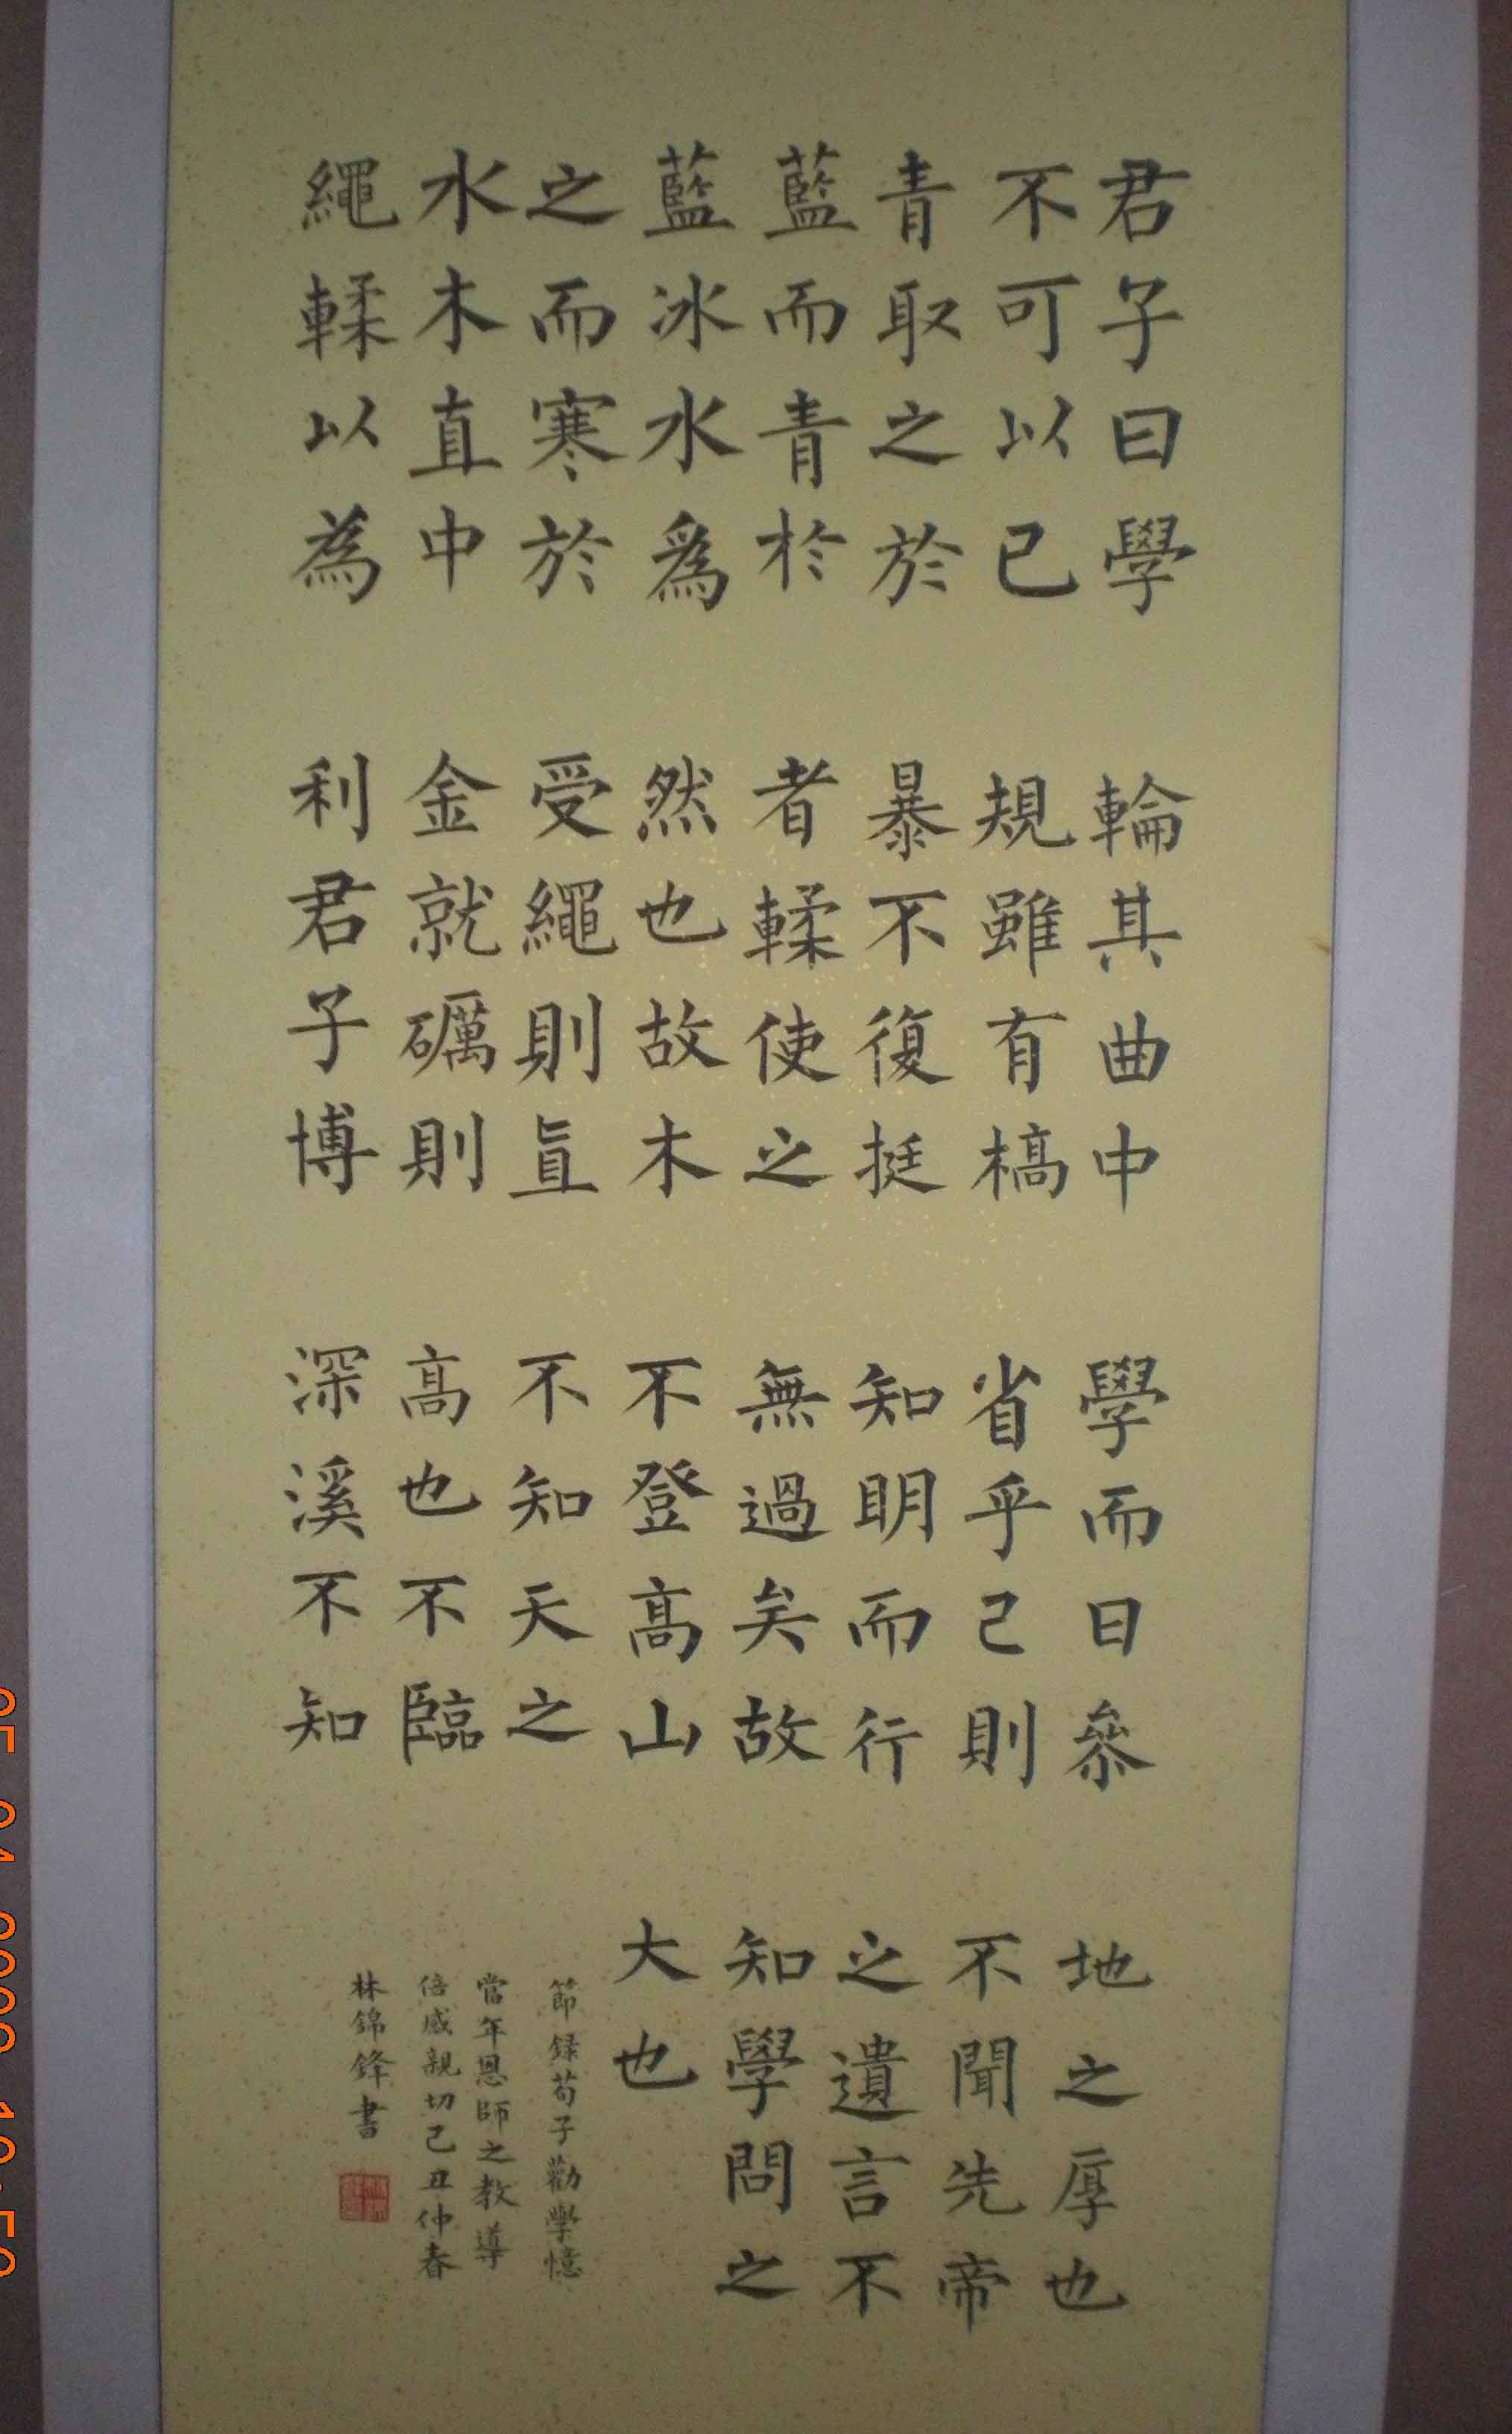 君子曰學
不可以已
青取之於
藍而青於
藍冰水爲
之而寒於
水木直中
繩輮以為
輪其曲中
規雖有槁
暴不復挺
者輮使之
然也故木
受繩則直
金就礪則
利君子博
學而日參
省乎己則
知明而行
無過矣故
不登高山
不知天之
高也不臨
深溪不知
地之厚也
不聞先帝
之遺言不
知學問之
大也
節錄荀子勸學憶
當年恩師之教導
倍感親切己丑仲春
林錦鋒書